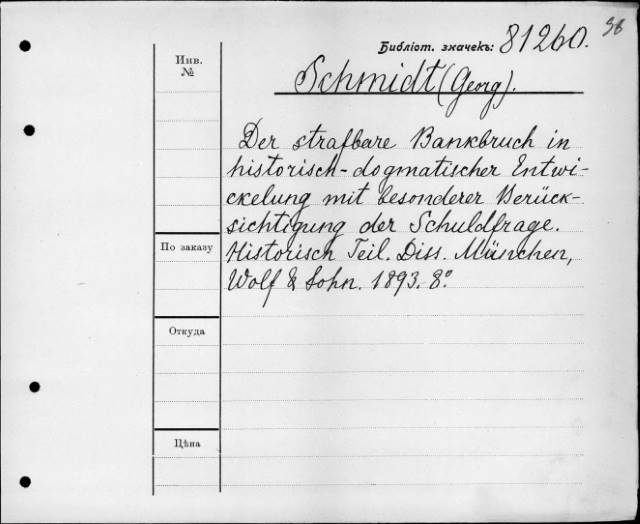 38
Библіот. значекъ: 81260.
Schmidt (Georg).
Инв.
№
Der strafbare Bankbruch in
historisch-dogmatischer Entwi-
ckelung mit besonderer Berück-
sichtigung der Schuldfrage.
Historisch Teil. Diss. München,
Wolf & Sohn. 1893. 8º
По заказу
Откуда
Цѣна